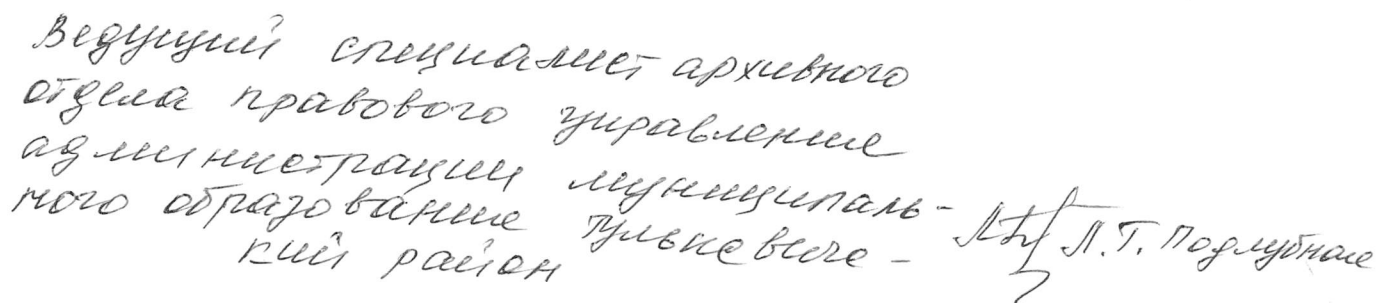 Ведущий специалист архивного
отдела правового управления
администрации муниципаль-
ного образования Гулькевичс-
кий район
Л.Т. Подлубная